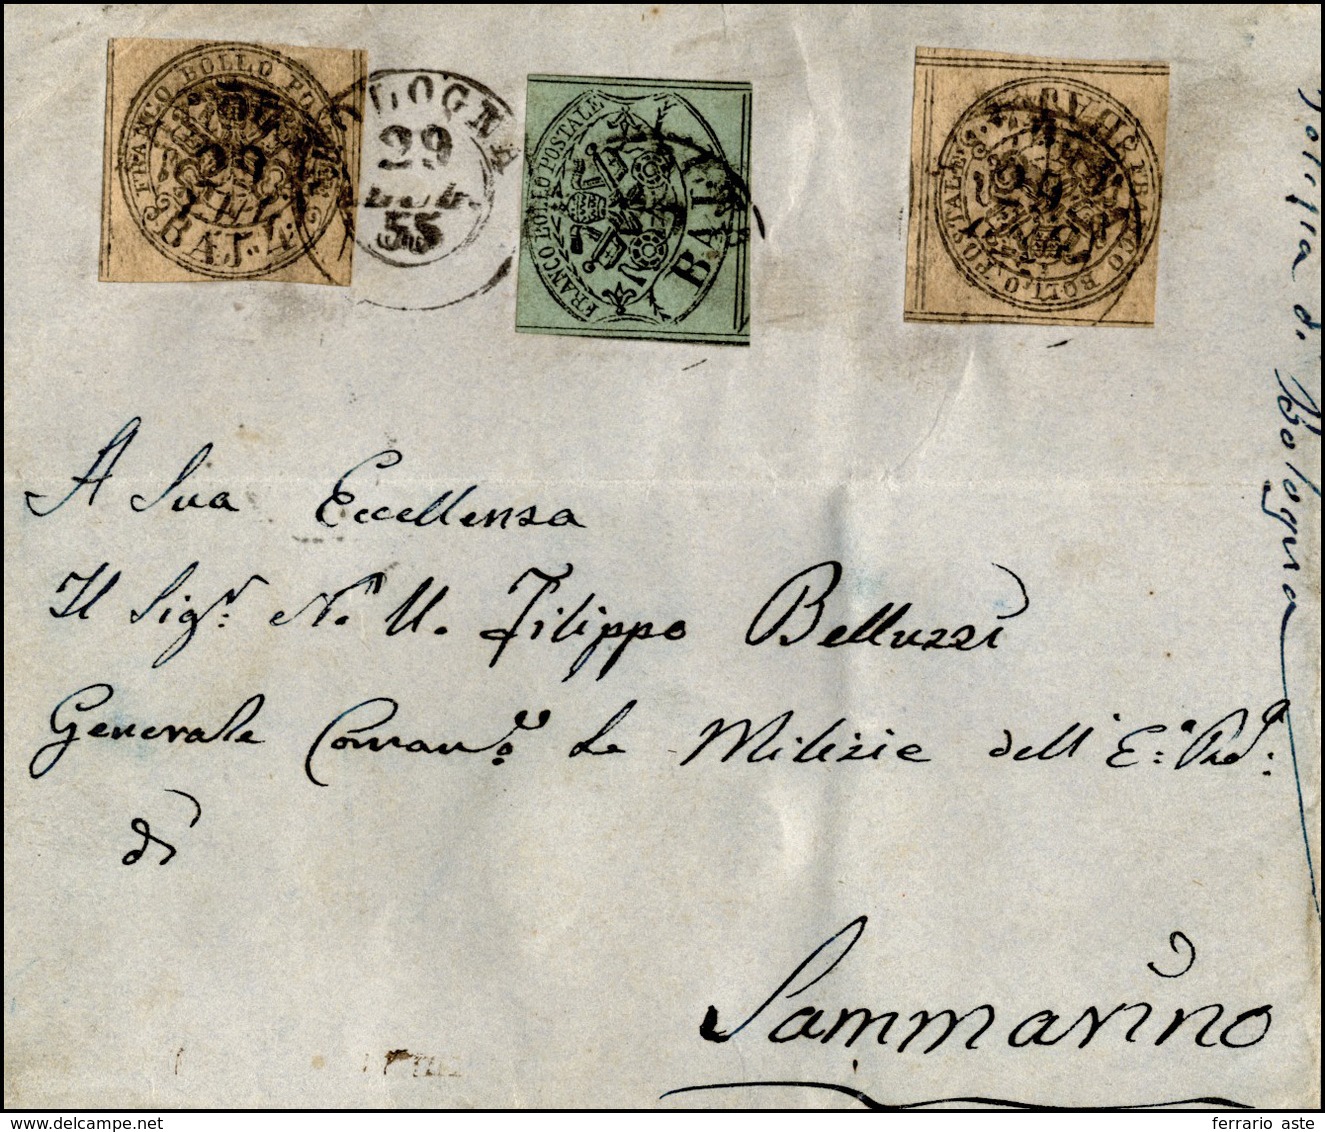 FRANCO BOLLO POSTALE
BAJ. 4
BOLOGNA
29
LUG.
55
FRANCO BOLLO POSTALE
BAJ.
FRANCO BOLLO POSTALE
A Sua Eccellenza
Il Sigr: N. U. Filippo Belluzzi
Generale Coman.o le Milizie dell' E:
di
Sammarino
di Bologna
www.delcampe.net
ferrario aste